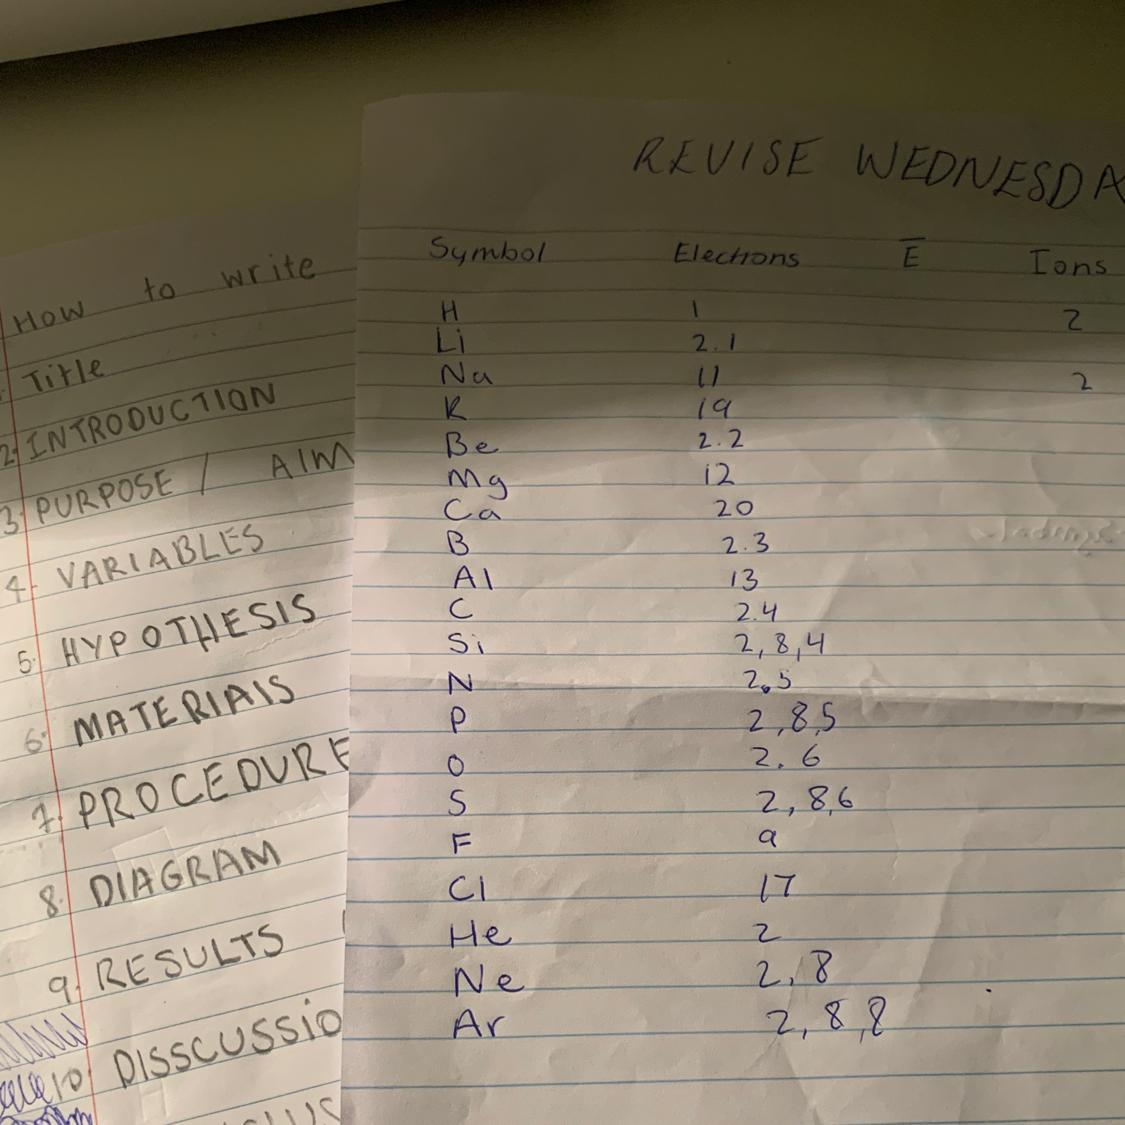 How to write
Title
2. INTRODUCTION
3. PURPOSE / AIM
4. VARIABLES
5. HYPOTHESIS
6. MATERIAIS
7. PROCEDURE
8. DIAGRAM
9. RESULTS
10 DISSCUSSIO
REVISE WEDNESDA
Symbol Electrons E Ions
H 1 2
Li 2.1
Na 11 2
K 19
Be 2.2
Mg 12
Ca 20
B 2.3
Al 13
C 2.4
Si 2,8,4
N 2.5
P 2,8,5
O 2.6
S 2,8,6
F 9
Cl 17
He 2
Ne 2,8
Ar 2,8,8